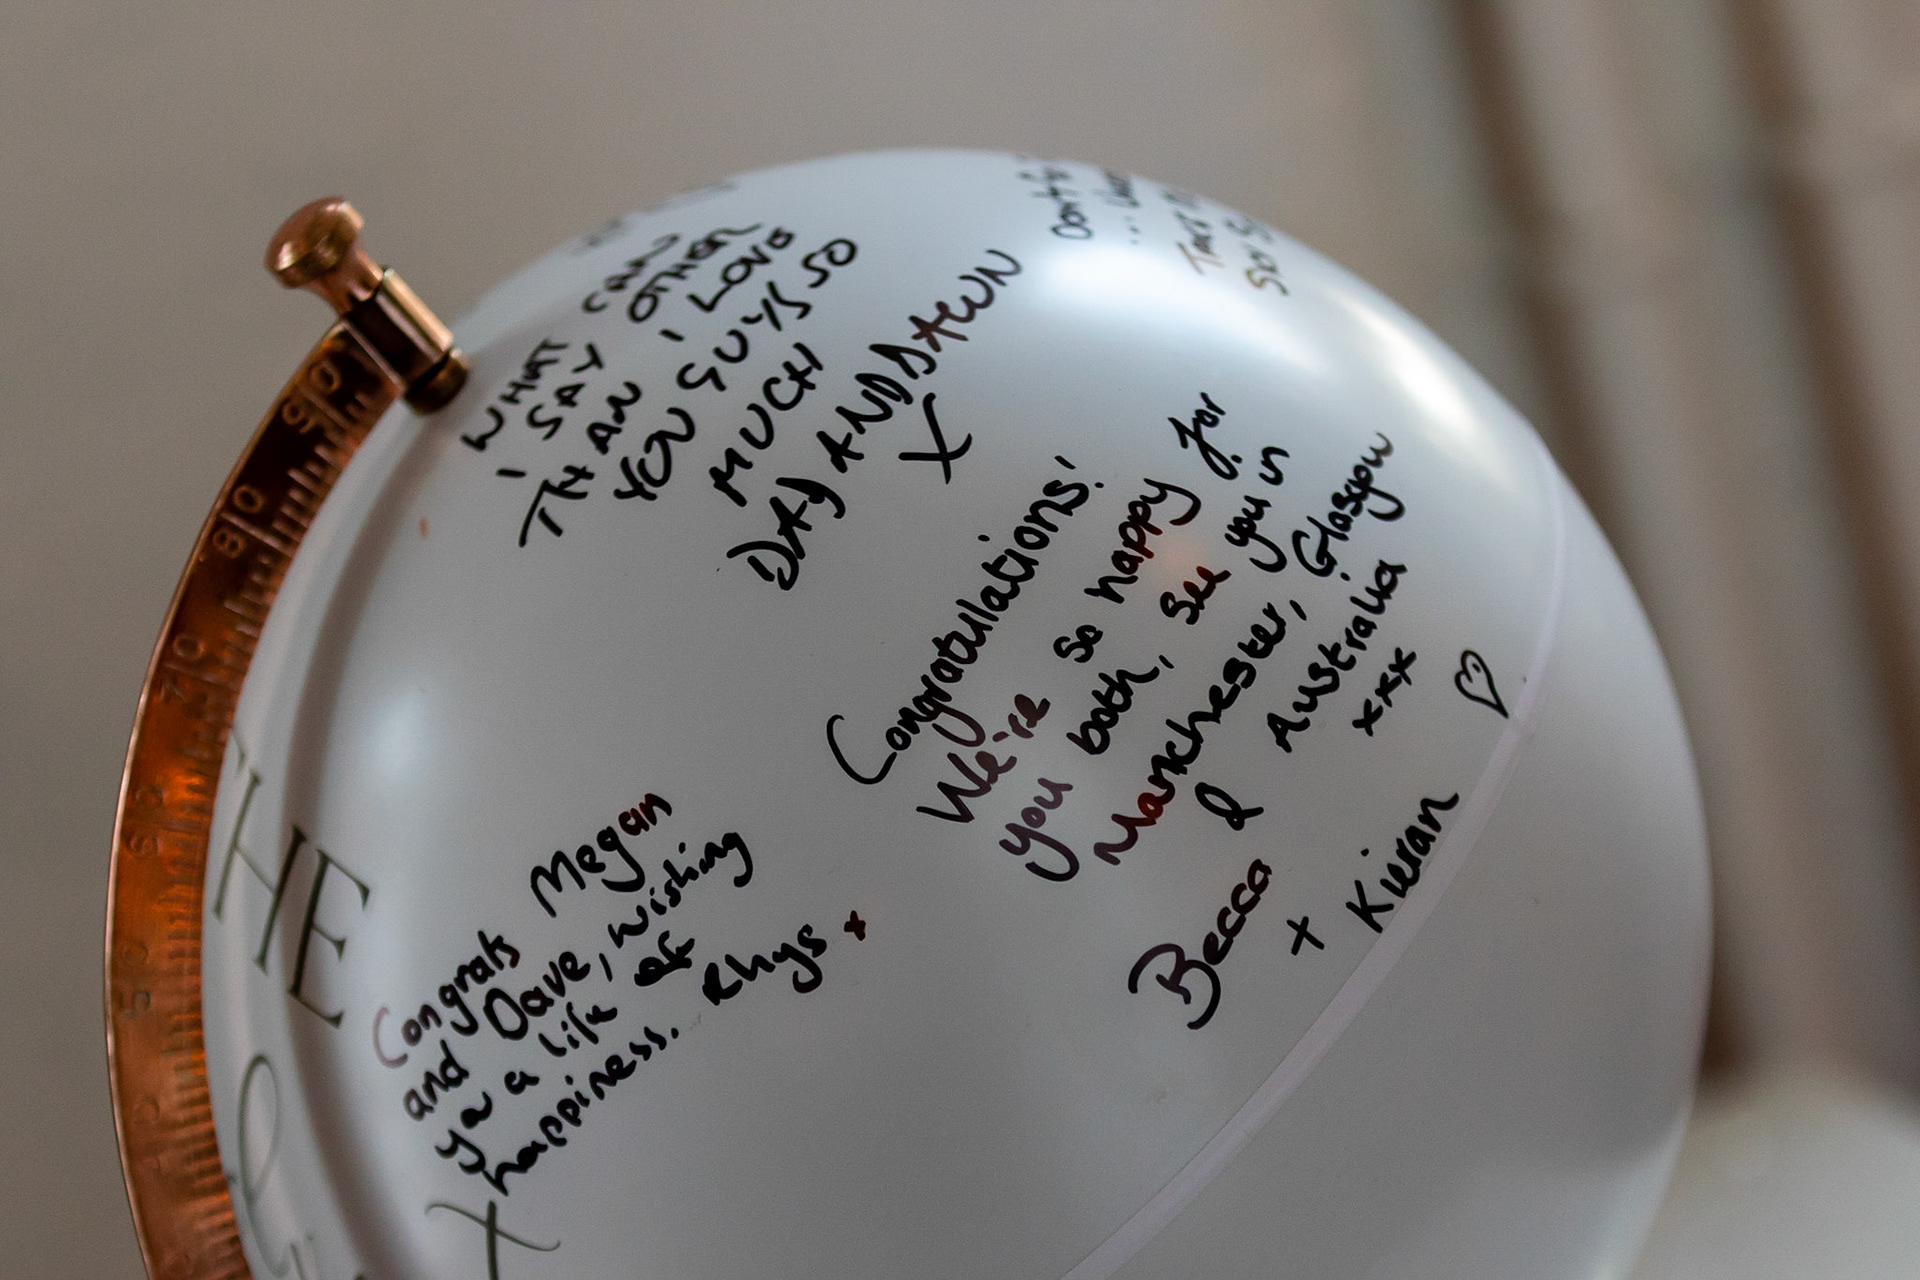 WHAT CAN
I SAY OTHER
THAN I LOVE
YOU GUYS SO
MUCH
DAD AND DAWN
X
Congratulations!
We're so happy for
you both, see you in
Manchester, Glasgow
& Australia
xxx
♡
Becca
+ Kieran
Congrats Megan
and Dave, wishing
ya a life of
happiness. Rhys x
HE
90
80
70
60
50